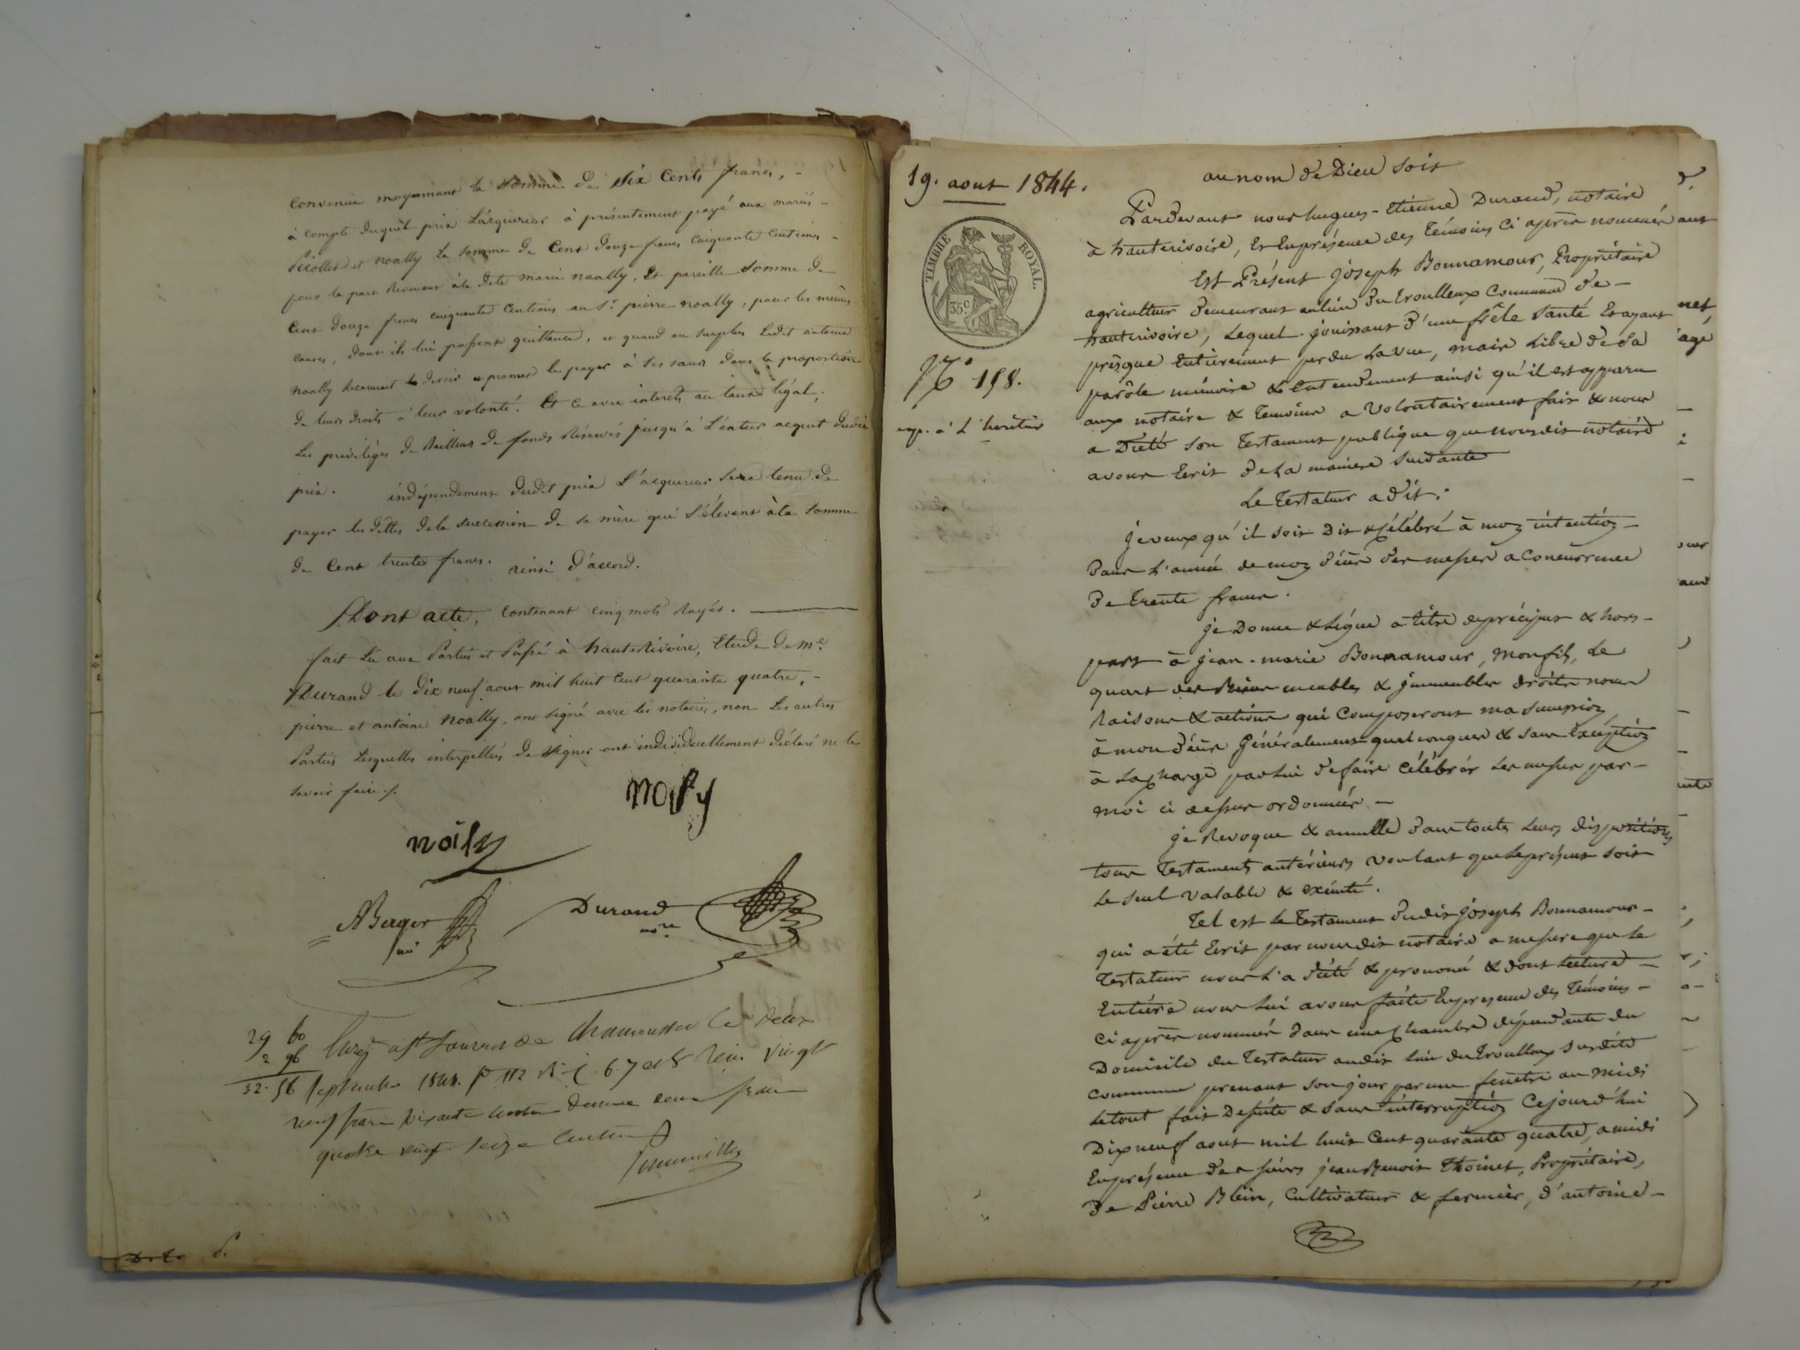 convenue moyennant la somme de Six Cents francs, -
à compte duquel prix L'acquereur à présentement payé aux mariés -
Picollet et noally la somme de Cent douze francs Cinquante Centimes -
pour la part Revenant à la dite marie noally, Et pareille somme de
Cent douze francs cinquante Centimes au Sr. pierre noally, pour les mêmes
causes, dont ils lui passent quittance, et quand au surplus Ledit antoine
noally reconnait le devoir & promet le payer à ses sœurs dans la proportion
de leurs droits à leur volonté. Et ce avec interets au taux légal;
Les privilèges de Bailleur de fonds Réservés jusqu'à L'entier acquit dudit
prix. indépendament dudit prix L'acquereur Sera tenu de
payer les dettes de la succession de sa mère qui S'élèvent à la somme
de Cent trente francs. ainsi d'accord.
Dont acte, contenant cinq mots Rayés.
fait Lu aux Parties et Passé à hauterivoire, Etude de Me.
Durand le dix neuf aout mil huit Cent quarante quatre, -
pierre et antoine Noally, ont signé avec les notaires, non Les autres
Parties Lesquelles interpellées de signer ont individuellement déclaré ne le
savoir faire ./.
noally
noily
ABerger
Durand
nore
29 60
2 96
32. 56
Enregé à St Laurent de Chamousset le deux
Septembre 1844. fo 112 Ro C. 6 7 et 8 Reçu vingt
neuf francs soixante centimes decime deux francs
quatre vingt seize Centimes
19. aout 1844.
TIMBRE ROYAL.
35c
No 158.
exp. à L'heritier
au nom de Dieu soit
Pardevant nous hugues-Etienne Durand, notaire
à hauterivoire, Et En présence des Témoins Ci après nommés
Est Présent Joseph Bonnamour, Propriétaire
agriculteur demeurant au lieu du trouilloux Commune de -
hauterivoire, Lequel jouissant d'une frêle Santé Et ayant
presque Entierement perdu La vue, mais Libre de sa
parôle mémoire & Entendement ainsi qu'il est apparu
aux notaire & Temoins a Volontairement fait & nous
a Dicté Son Testament publique que nousdit notaire
avons Ecrit de La maniere Suivante
Le Testateur a dit:
Je veux qu'il soit Dit & Célébré à mon intention -
Dans L'année de mon décès des messes a Concurrence
De Trente francs.
Je Donne & Légue a Titre de préciput & hors -
part à Jean-marie Bonnamour, Mon fils, Le
quart des Biens meubles & Jmmeubles droits noms
Raisons & actions qui Composeront ma Succession
à mon décès Généralement quelconques & sans Exception
à La charge par Lui de faire Célébrer Les messes par -
moi ci dessus ordonnées -
Je Revoque & annulle dans toutes Leurs dispositions
tous Testaments antérieurs voulant que Le présent soit
Le seul valable & exécuté.
Tel est Le Testament dudit Joseph Bonnamour -
qui a été Ecrit par nousdit notaire a mesure que Le
Testateur nous L'a dicté & prononcé & dont Lecture -
Entière nous Lui avons faite En presence des Témoins -
Ci après nommés dans une Chambre dépendante du
Domicile du Testateur audit Lieu du trouilloux Susdite
Commune prenant son jour par une fenêtre au midi
Le tout fait De suite & sans interruption Cejourd'hui
Dix neuf aout mil huit Cent quarante quatre, a midi
En présence des sieurs Jean Benoit Thoinet, Propriétaire,
De Pierre Blein, Cultivateur & fermier, d'antoine -